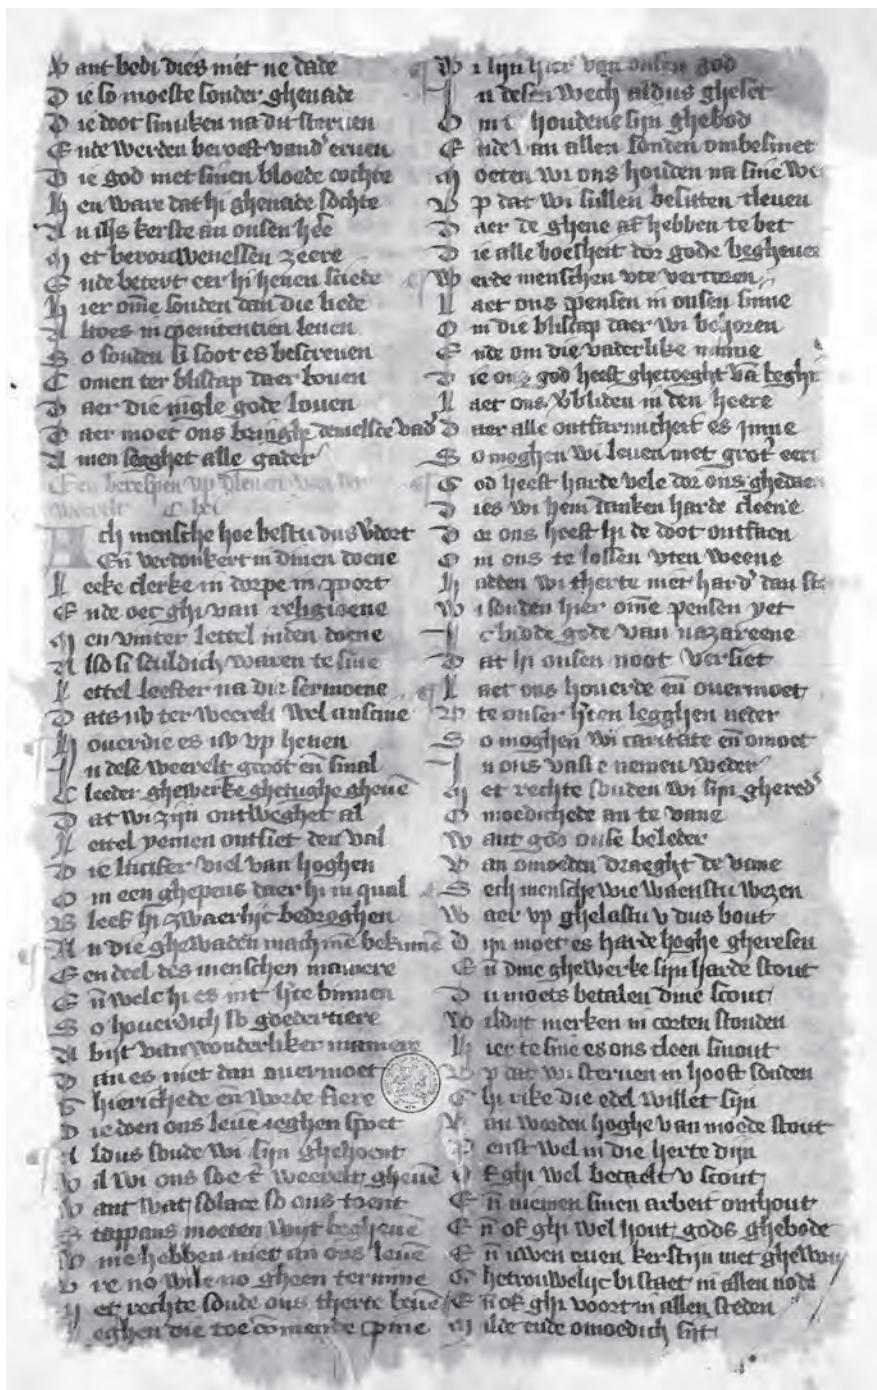 Want bedi dies niet ne dade
Die so moeste sonder ghenade
Die doot smaken na dit steruen
Ende werden beroeft vand' eruen
Die god met sinen bloede cochte
Hen ware dat hi ghenade sochte
An kerste an onsen
Met berouwenessen zeere
Ende betert eer hi henen sciede
Hier ome souden dan die liede
Altoes in penitentien leuen
So souden si soot es bescreuen
Comen ter bliscap daer bouen
Daer die inglе gode louen
Daer moet ons bringhe
Amen segghet alle gader
Een berespen vp tleuen van der
weerelt
Ach mensche hoe bestu dus
En verdonkert in dinen doene
Leeke clerke in dorpe in poort
Ende oec ghi van religioene
Men vinter lettel inden doene
Also si sculdich waren te sine
Lettel leefter na die sermoene
Dats vb ter weerelt wel anscine
Houerdie es vp heuen
In dese weerelt groot en smal
Cleeder ghewerke ghetughe gheue
Dat wi zijn ontweghet al
Lettel yemen ontsiet den val
Die lucifer viel van hoghen
Om een ghepens daer hi in qual
Bleef hi zwaerlijc bedroghen
An die ghewaden mach me bekinne
Een deel des menschen maniere
En welc hi es int h'te binnen
So houerdich so goedertiere
Abijt van wonderliker maniere
Dan es niet dan ouermoet
Ghierichede en worde fiere
Die doen ons leue ieghen spoet
Aldus soude wi sijn ghehoent
Wil wi ons toe t' weerelt gheue
Want wat solace so ons toent
Stappans moeten wijt begheue
Wine hebben niet an ons leue
Vre no wile no gheen termine
Met rechte soude ons therte beue
Ieghen die toe comende pine
Wi sijn hier van onsen god
In desen wech aldus gheset
Om te houdene sijn ghebod
Ende van allen sonden ombesmet
Moeten wi ons houden na sine
Vp dat wi sullen besitten tleuen
Daer de ghene af hebben te bet
Die alle boesheit dor gode begheuen
Werde menschen vte vercoren
Laet ons pensen in onsen sinne
Om die bliscap daer wi behoren
Ende om die vaderlike minne
Die ons god heeft ghetoeght va beghi
Laet ons v'bliden in den heere
Daer alle ontfarmicheit es inne
So moghen wi leuen met grot'
God heeft harde vele dor ons ghedaen
Dies wi hem danken harde cleene
Dor ons heeft hi de doot ontfaen
Om ons te lossen vten weene
Hadden wi therte niet hard' dan
Wi souden hier ome pensen yet
gode van nazareene
Dat hi onsen noot versiet
Laet ons houerde en ouermoet
Wte onser h'ten legghen neder
So moghen wi caritate en omoet
In ons vaste nemen weder
Met rechte souden wi sijn ghered'
Omoedichede an te vane
Want god onse beleder
Van omoeden draeght de vane
Sech mensche wie waenstu wezen
Waer vp ghelastu v dus bout
Dijn moet es harde hoghe gheresen
En dine ghewerke sijn harde stout
Du moets betalen dine scout
Wildijt merken in corten stonden
Hier te sine es ons cleen
Vp dat wi steruen in hooft sonden
Ghi rike die edel willet sijn
Van worden hoghe van moede stout
Penst wel in die herte dijn
Of ghi wel betaelt v scout
En niemen sinen arbeit onthout
En of ghi wel hout gods ghebode
En uwen euen kerstijn met
Ghetrouwelijc bi staet in allen node
En of ghi voort in allen steden
Milde ende omoedich sijt